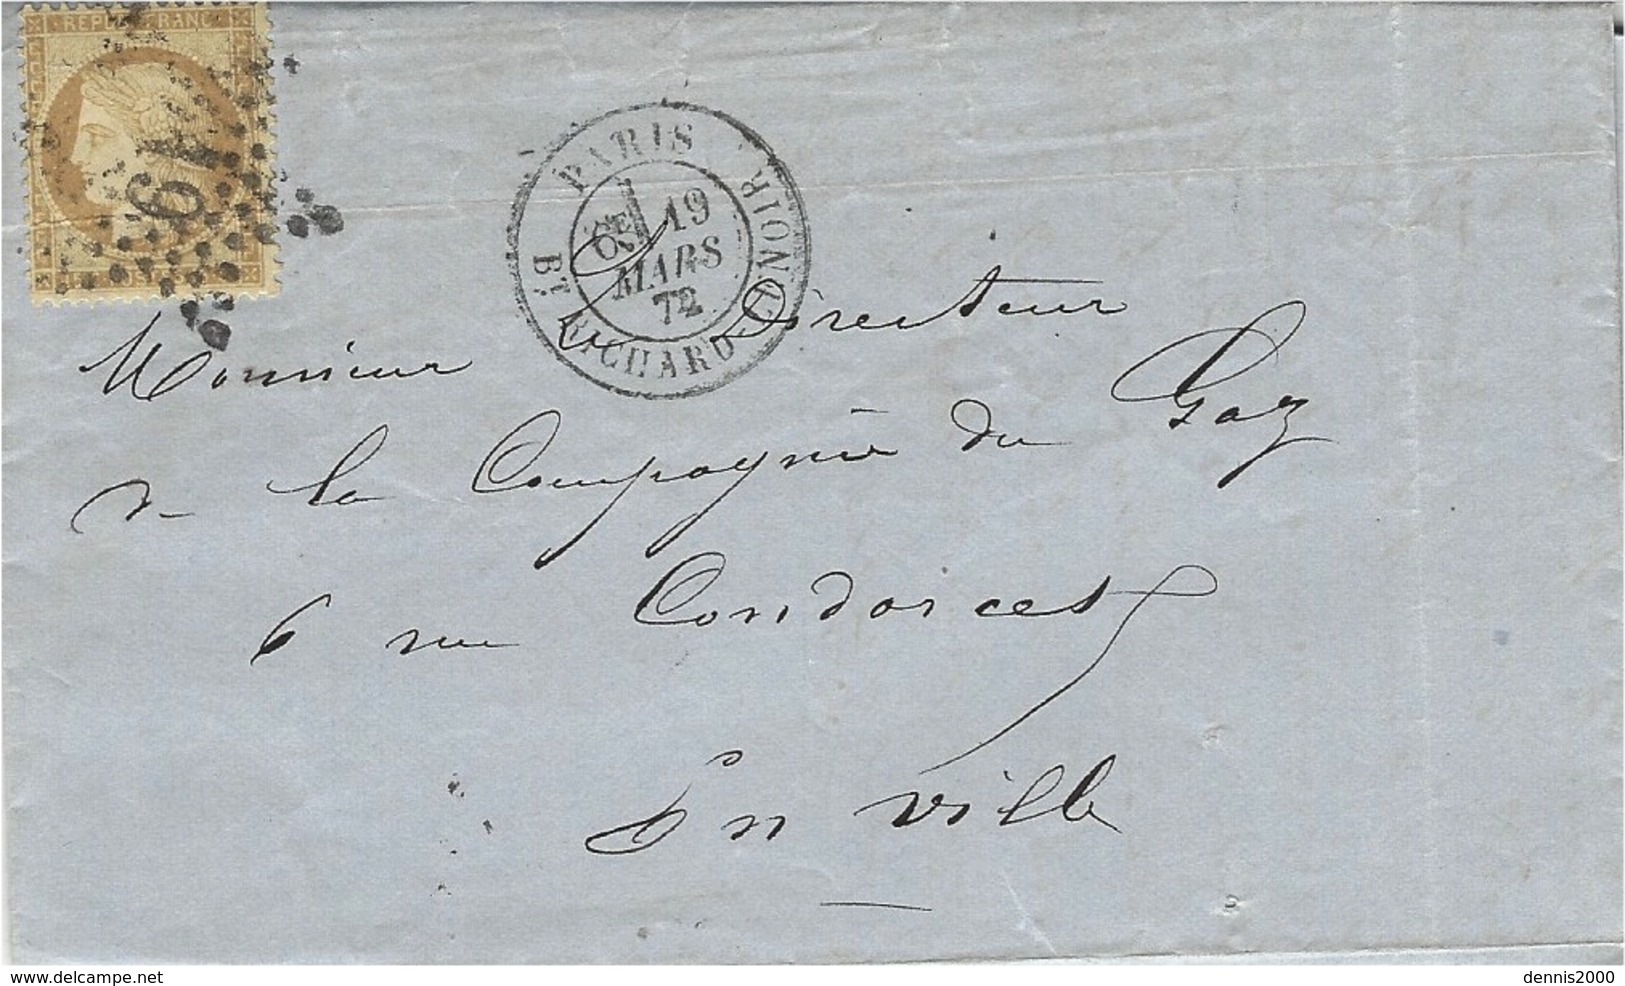 REPUB. FRANC.
19
PARIS
6E 19
MARS
72
BT RICHARD-LENOIR
Monsieur le Directeur
de la Compagnie du Gaz
6 rue Condorcet
En ville
www.delcampe.net
dennis2000